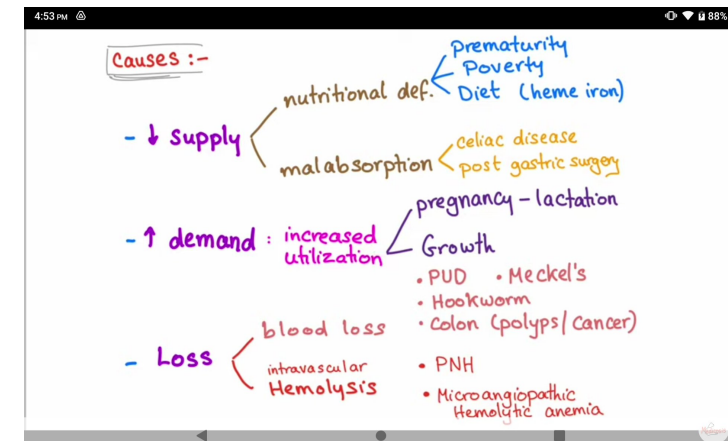 4:53 PM
88%
Causes :-
- ↓ Supply
nutritional def.
Prematurity
Poverty
Diet (heme iron)
malabsorption
celiac disease
post gastric surgery
- ↑ demand : increased
utilization
pregnancy - lactation
Growth
- Loss
blood loss
• PUD • Meckel's
• Hookworm
• Colon (polyps/Cancer)
intravascular
Hemolysis
• PNH
• Microangiopathic
Hemolytic anemia